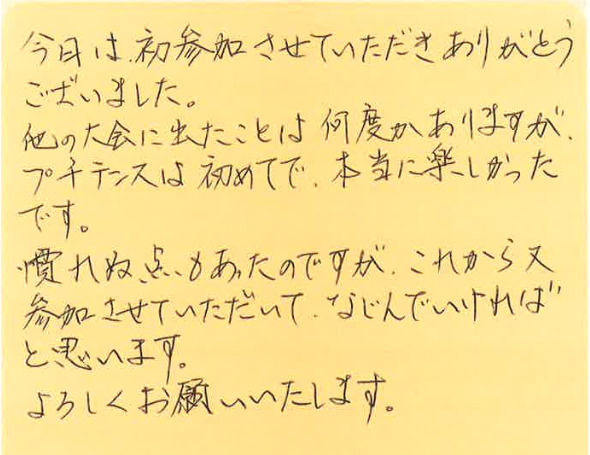 今日は、初参加させていただきありがとう
ございました。
他の大会に出たことは何度かありますが、
プチテンスは初めてで、本当に楽しかった
です。
慣れぬ点もあったのですが、これから又
参加させていただいて、なじんでいければ
と思います。
よろしくお願いいたします。